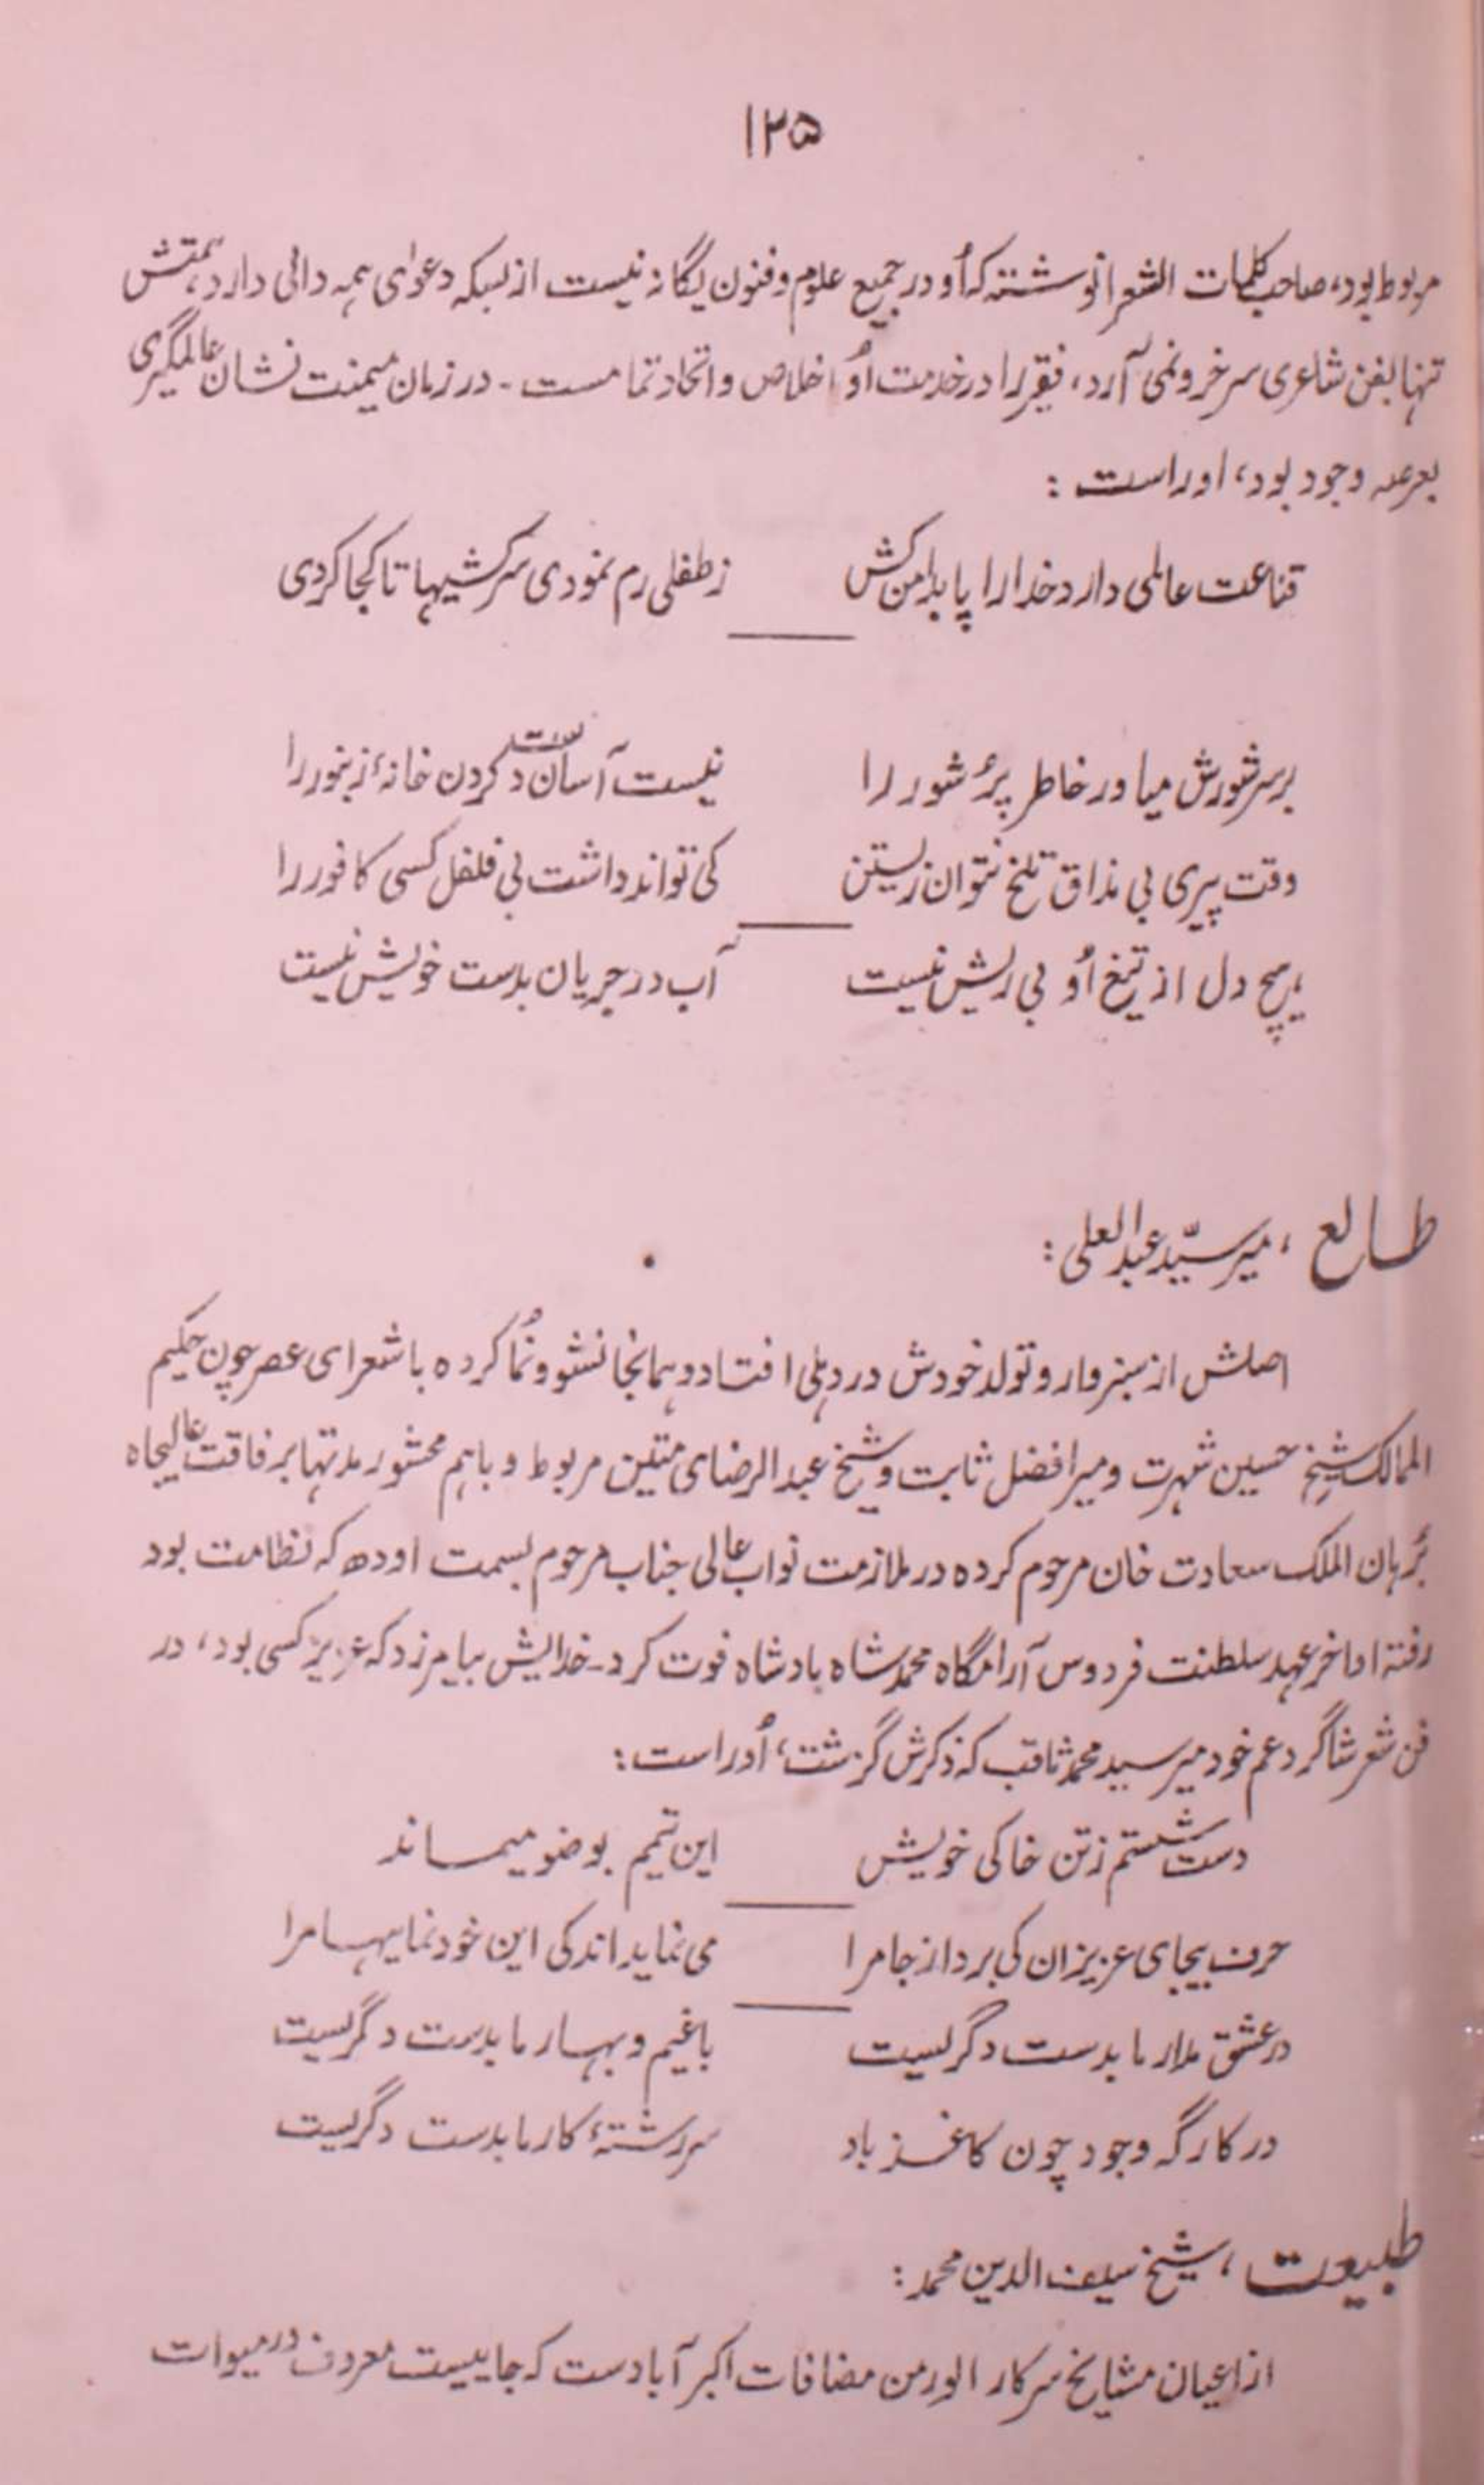 ۱۲۵
مربوط بود، صاحب کلمات الشعرا نوشته که اُو در جمیع علوم و فنون یگانه نیست از بسکه دعوٰی همه دانی دارد، همتش
تنها بفن شاعری سر فرو نمی آرد، فقیر را در خدمت اُو اخلاص و اتحاد تمامست - در زمان میمنت نشان عالمگیری
بعرصه وجود بود، اوراست :
قناعت عالمی دارد خدا را پا بدامن کش زطفلی رم نمودی سرکشیها تا کجا کردی
بر سر شورش میاور خاطر پُر شور را نیست آسان دست کردن خانهٔ زنبور را
وقت پیری بی مذاق تلخ نتوان زیستن کی تواند داشت بی فلفل کسی کافور را
هیچ دل از تیغ اُو بی ریش نیست آب در جریان بدست خویش نیست
طالع ، میر سیّد عبدالعلی :
اصلش از سبزوار و تولد خودش در دهلی افتاد و همانجا نشو و نُما کرده با شعرای عصر چون حکیم
الممالک شیخ حسین شهرت و میر افضل ثابت و شیخ عبدالرضای متین مربوط و باهم محشور مدتها بر فاقت عالیجاه
بُرهان الملک سعادت خان مرحوم کرده در ملازمت نواب عالی جناب مرحوم بسمت اودھ که نظامت بود
رفته اواخر عهد سلطنت فردوس آرامگاه محمد شاه بادشاه فوت کرد - خدایش بیامرزد که عزیز کسی بود، در
فن شعر شاگرد عم خود میر سید محمد ثاقب که ذکرش گزشت، اُوراست :
دست شستم زتن خاکی خویش این تیمم بوضو میماند
حرف بیجای عزیزان کی برد از جا مرا می نماید اندکی این خود نماییها مرا
در عشق مدار ما بدست دگریست باغیم و بهار ما بدست دگریست
در کارگه وجود چون کاغذ باد سر رشتهٔ کار ما بدست دگریست
طبیعت ، شیخ سیف الدین محمد :
از اعیان مشایخ سرکار الور من مضافات اکبر آبادست که جاییست معروف در میوات